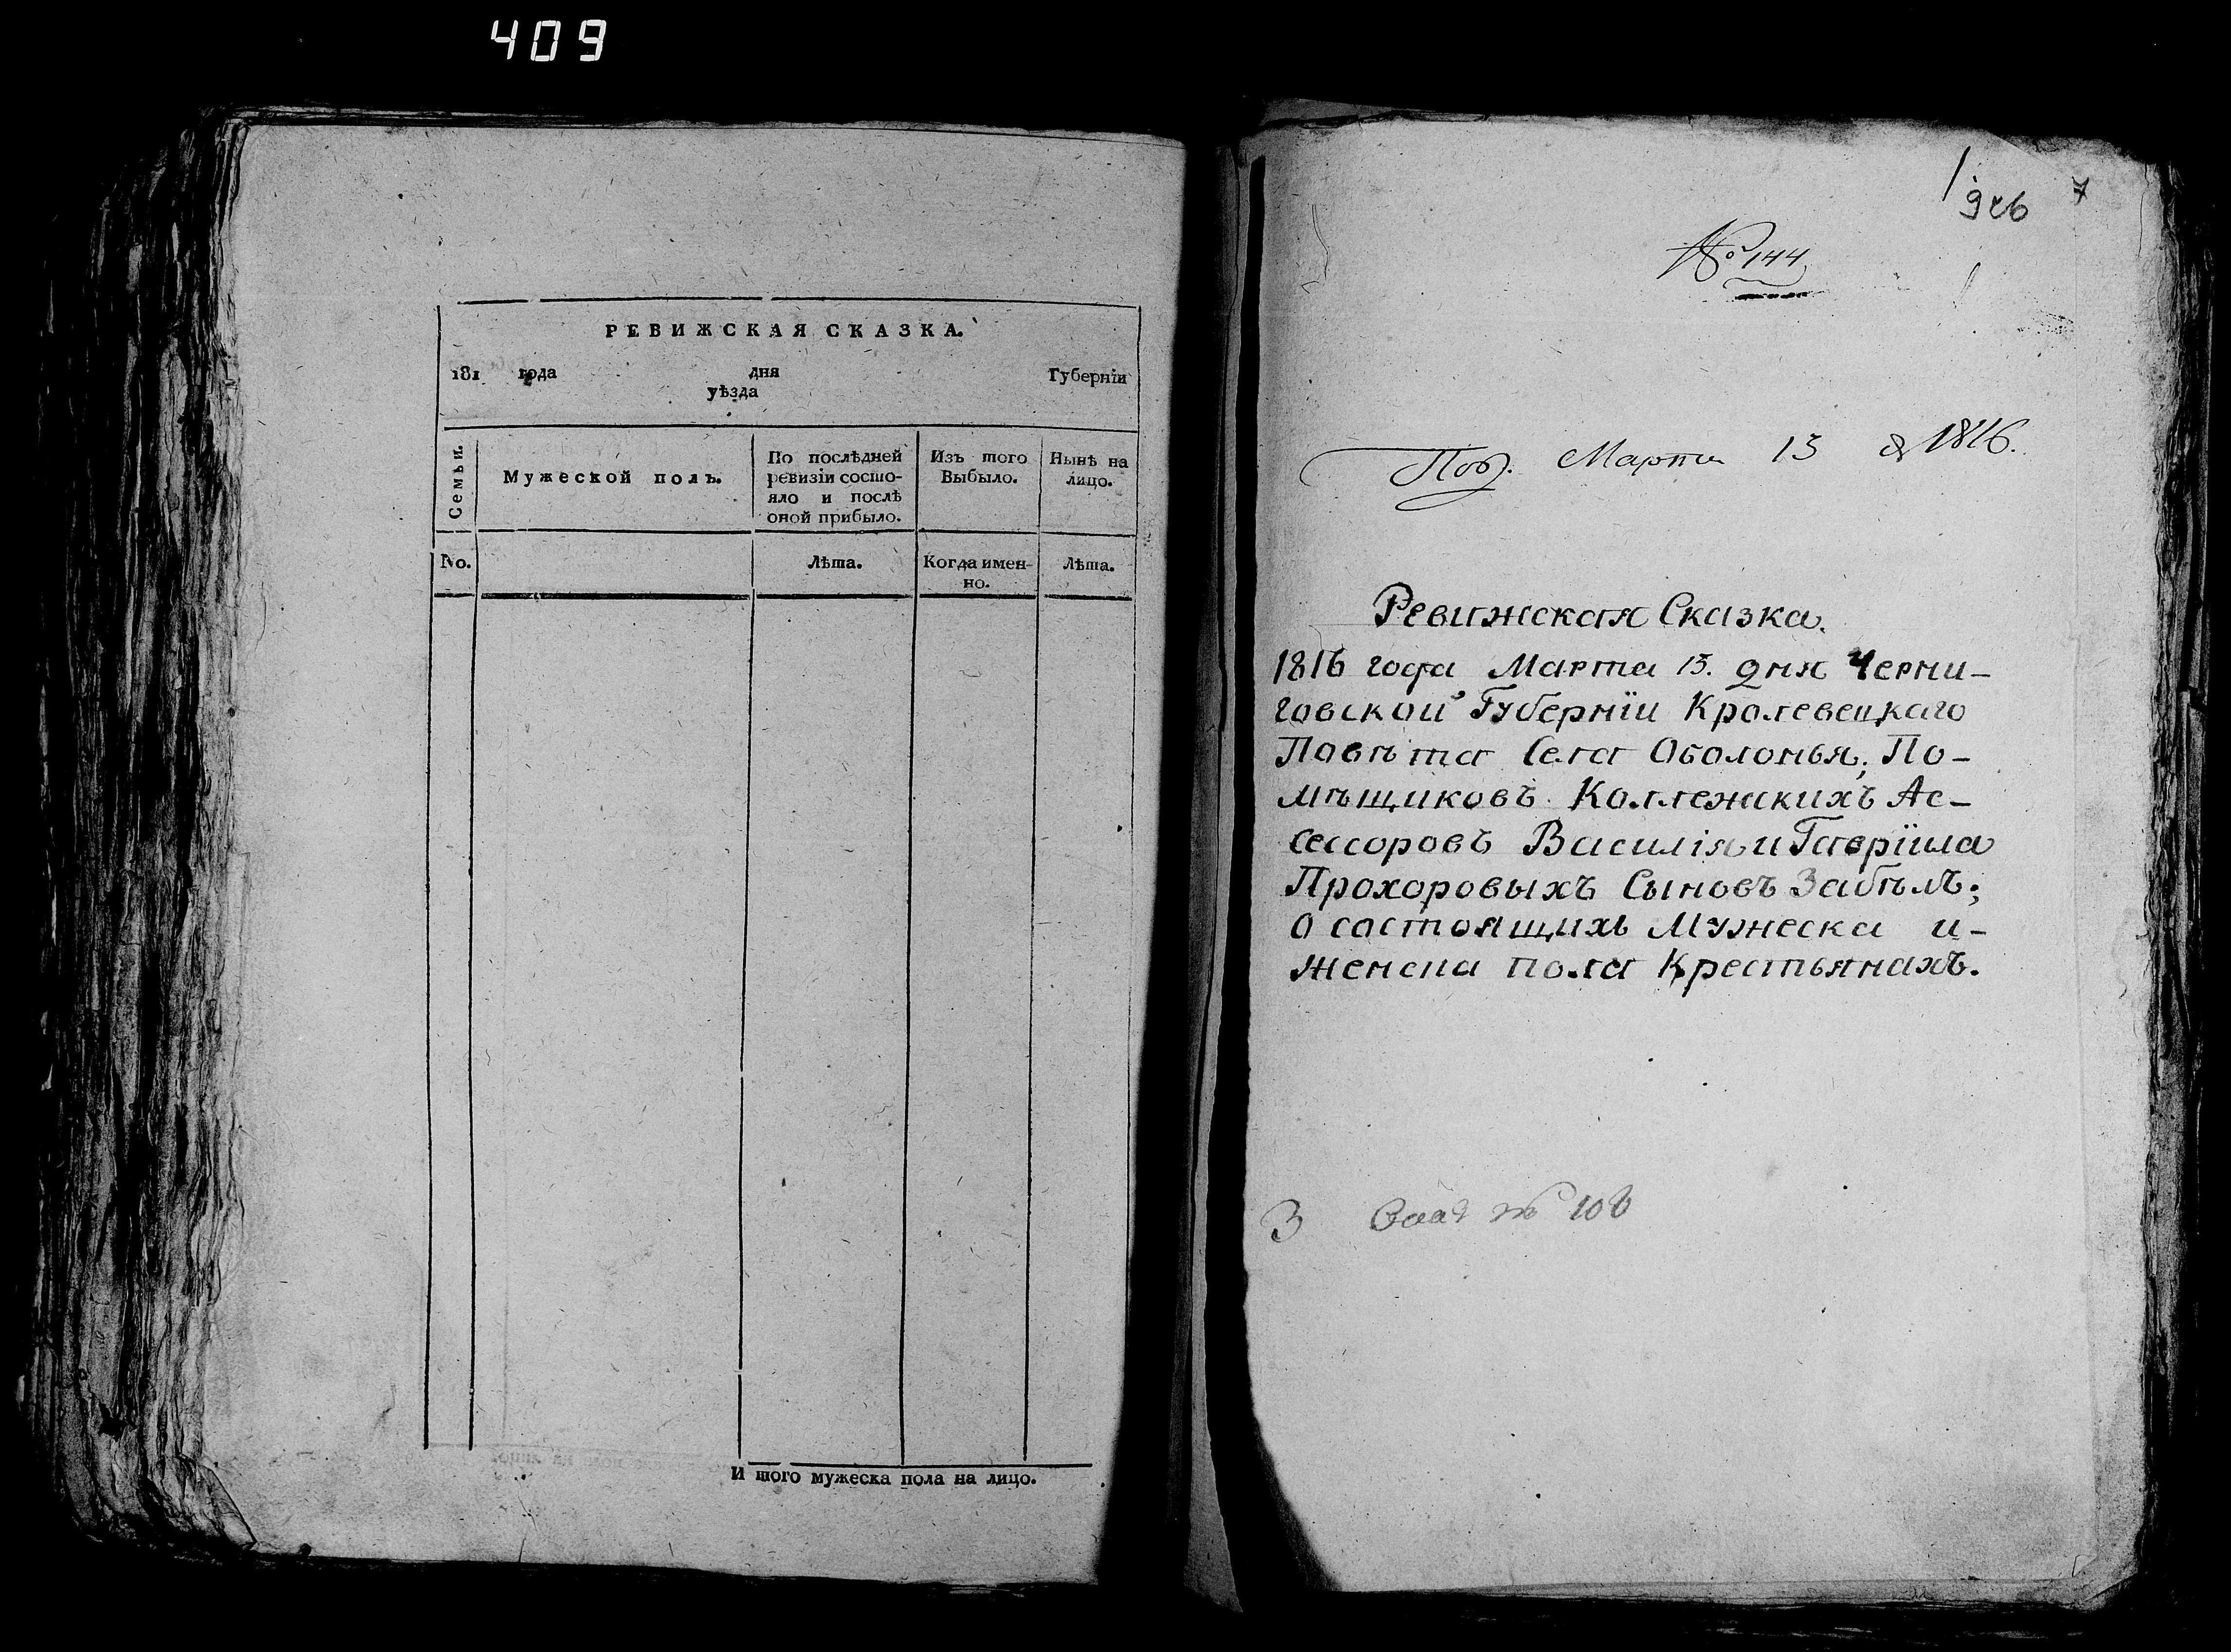 409
РЕВИЖСКАЯ СКАЗКА.
181 года дня Губерніи
уѣзда
Семьи.
Мужеской полъ.
По послѣдней
ревизіи состо-
яло и послѣ
оной прибыло.
Изъ того
Выбыло.
Нынѣ на
лицо.
No.
Лѣта.
Когда имен-
но.
Лѣта.
И того мужеска пола на лицо.
№ 144
Марта 13 1816.
Ревижская Сказка.
1816 года Марта 13. дня Черни-
говской Губерніи Кролевецкаго
Повѣта Села Оболонья; По-
мѣщиковъ Коллежскихъ Ас-
сессоровъ Василія и Гавріила
Прохоровыхъ Сыновъ Забѣлъ;
о состоящихъ Мужеска и-
Женска пола Крестьянахъ.
3 № 106